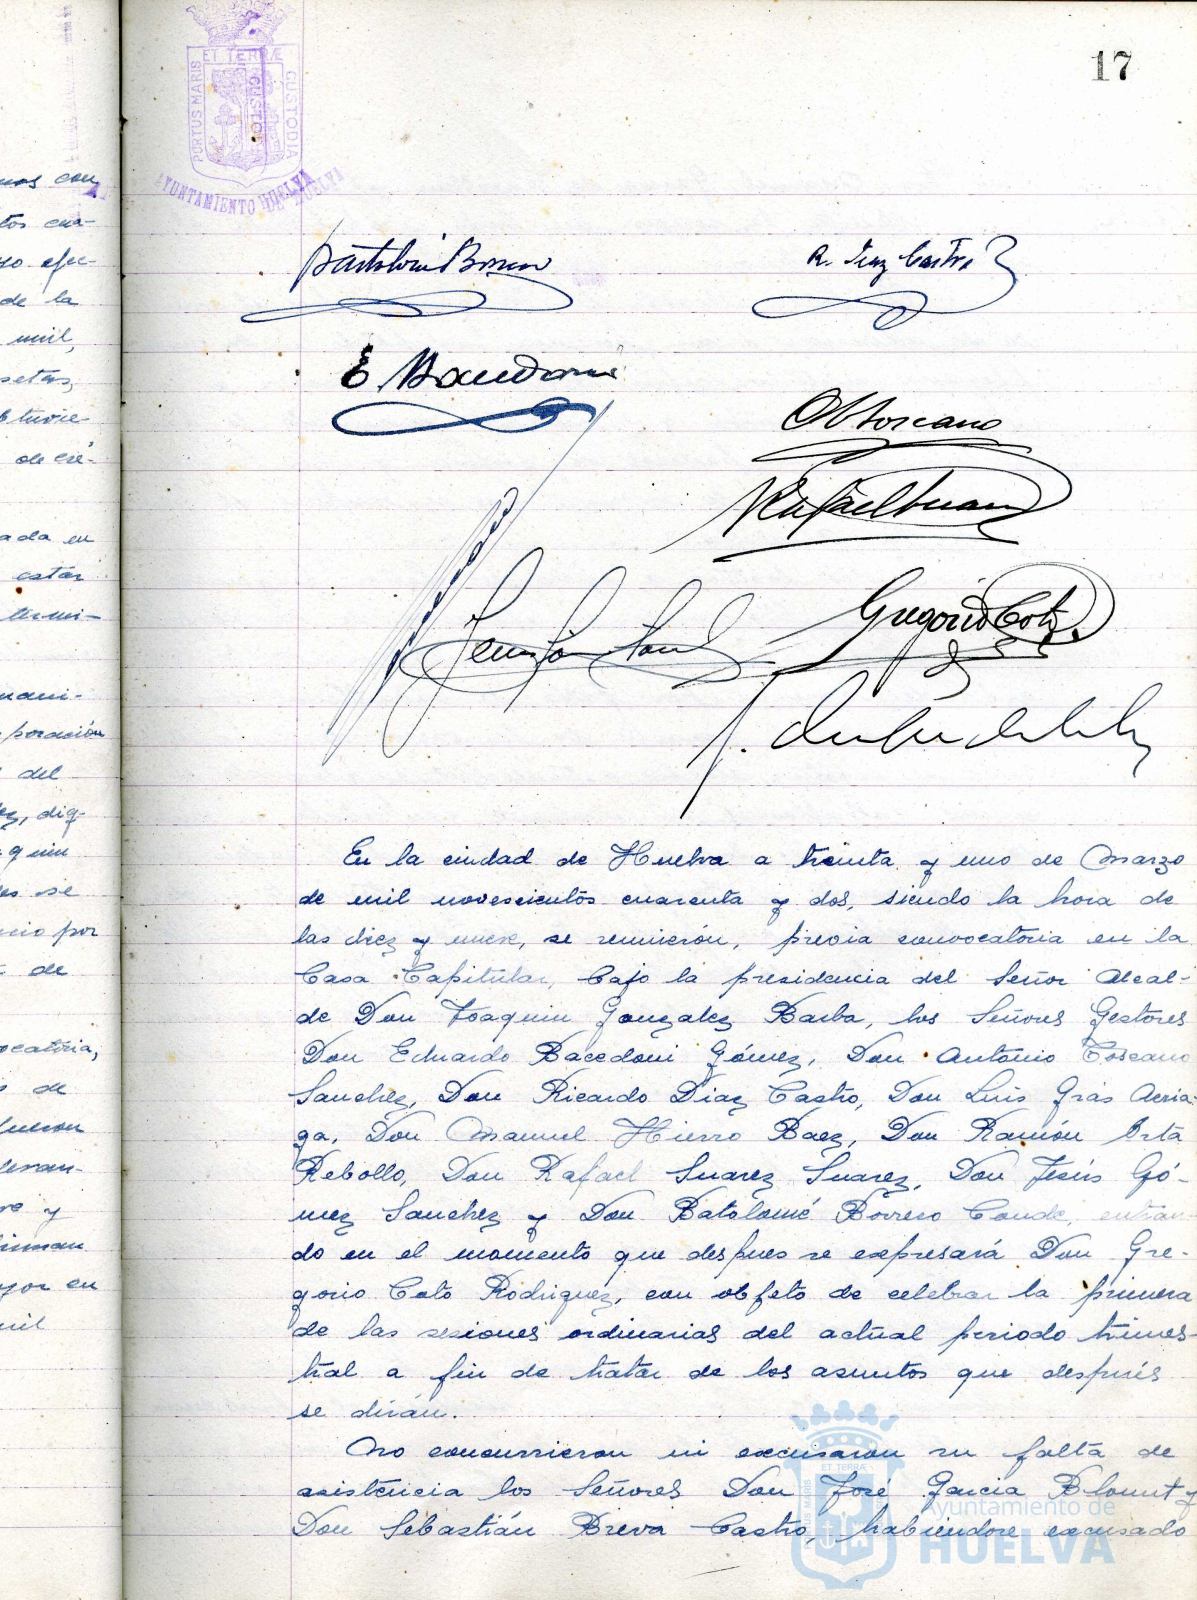 17
ET TERRÆ
PORTUS MARIS
CUSTODIA
CUSTOD
AYUNTAMIENTO HUELVA
DE HUELVA
nos con
tos cua-
yo efec-
de la
mil,
setas,
btuvie-
de cré-
ada en
estar
termi-
mani-
poración
del
ez, dig-
quin
des se
icio por
de
ocatoria,
de
y
yor en
mil
Bartolomé Borrero
R. Diaz Castro
E. Bacedoni
A Toscano
Rafael Suarez
Gregorio Coto
En la ciudad de Huelva a treinta y uno de Marzo
de mil novescientos cuarenta y dos, siendo la hora de
las diez y nueve, se reunierón, previa convocatoria en la
Casa Capitular, bajo la presidencia del Señor Alcal-
de Don Joaquin Gonzalez Barba, los Señores Gestores
Don Eduardo Bacedoni Gómez, Don Antonio Toscano
Sanchez, Don Ricardo Diaz Castro, Don Luis Gras Arria-
ga, Don Manuel Hierro Baez, Don Ramón Orta
Rebollo, Don Rafael Suarez Suarez, Don Jesús Gó-
mez Sanchez y Don Batolomé Borrero Conde, entran-
do en el momento que despues se expresará Don Gre-
gorio Coto Rodriguez, con objeto de celebrar la primera
de las sesiones ordinarias del actual periodo trimes-
tral a fin de tratar de los asuntos que después
se dirán.
No concurrieron ni excusaron su falta de
asistencia los Señores Don José Garcia Blount y
Don Sebastián Breva Castro, habiendose excusado
ET TERRÆ
Ayuntamiento de
HUELVA